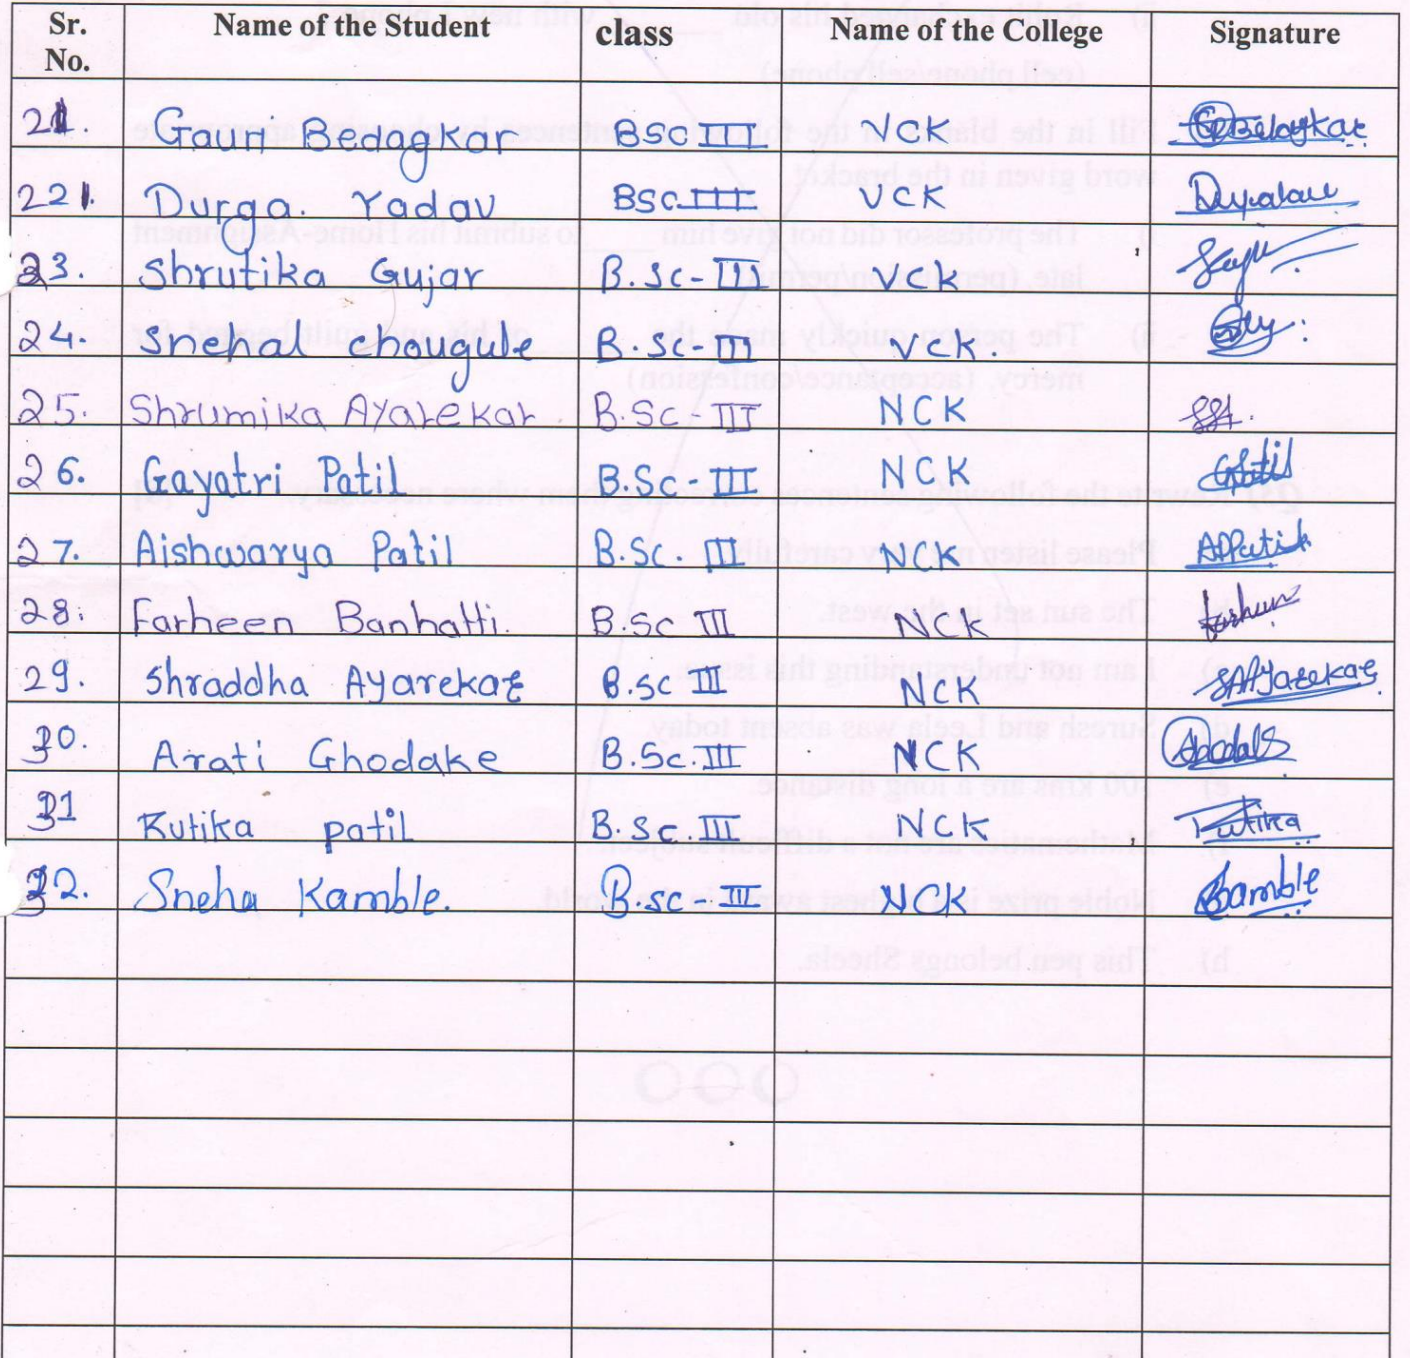 Sr. No. Name of the Student class Name of the College Signature
21 Gauri Bedagkar BSc III VCK GBedagkar
22. Durga. Yadav BSc III VCK
23. Shrutika Gujar B.Sc-III VCK
24. Snehal chougule B.Sc-III VCK.
25. Shrumika Ayarekar. B.Sc-III NCK
26. Gayatri Patil B.Sc-III NCK GPatil
27. Aishwarya Patil B.Sc. III NCK APPatil
28. Farheen Banhatti. B.Sc III NCK
29. Shraddha Ayarekar B.Sc III NCK SAAyarekar
30. Arati Ghodake B.Sc. III NCK
31 Rutika patil B.Sc. III NCK Rutika
32. Sneha Kamble. B.sc III NCK Kamble